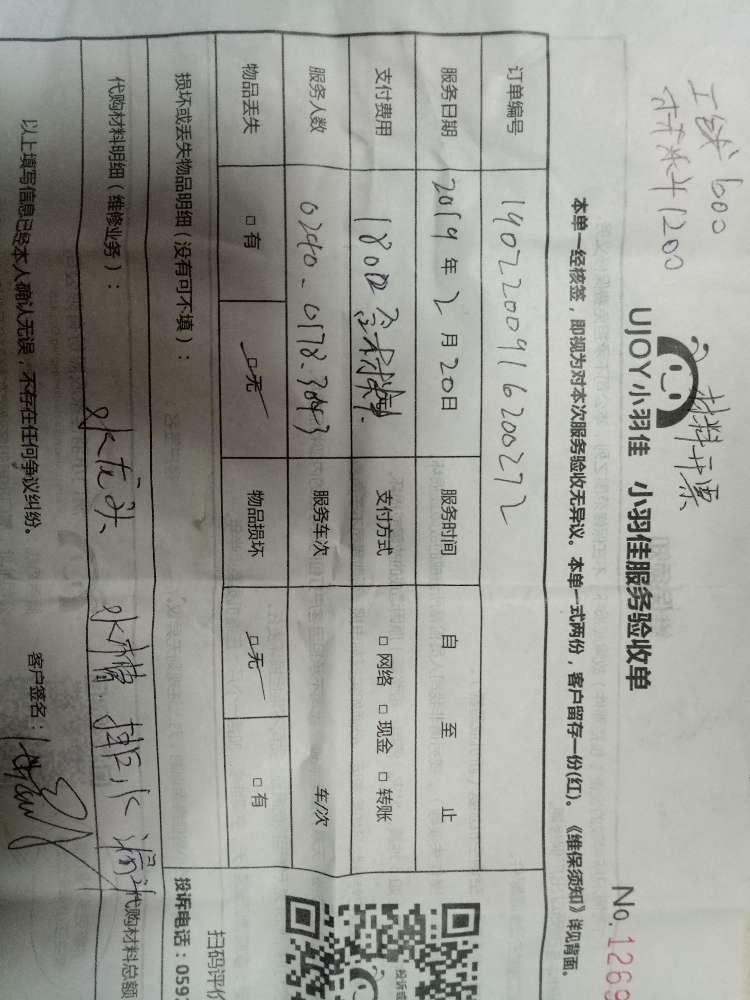 工钱600
材料1200
材料开票
UJOY小羽佳 小羽佳服务验收单
No. 1269
本单一经核签，即视为对本次服务验收无异议。本单一式两份，客户留存一份(红)。《维保须知》详见背面。
订单编号 1902200916200272
服务日期 2019年2月20日 服务时间 自 至 止
支付费用 1800 支付方式 □ 网络 □ 现金 □ 转账
服务人数 0240-0178-3043 服务车次 车/次
物品丢失 □ 有 □ 无 物品损坏 □ 无 □ 有
损坏或丢失物品明细（没有可不填）：
代购材料明细（维修业务）： 水龙头 水槽 排水 代购材料总额
以上填写信息已经本人确认无误，不存在任何争议纠纷。 客户签名：
扫码评价
投诉电话：059